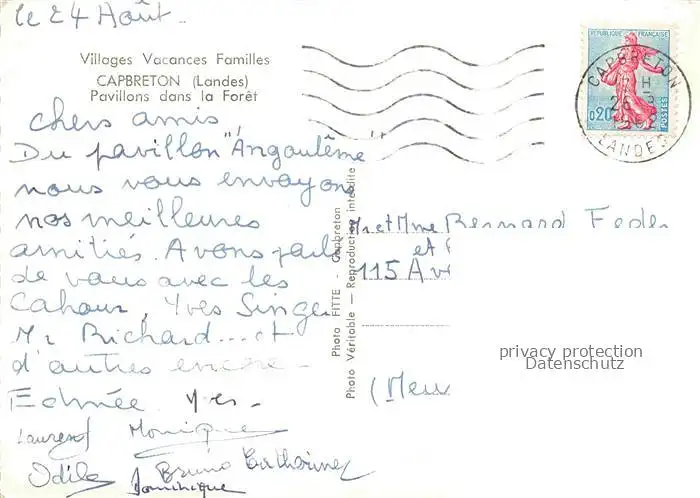 le 24 Août.
Villages Vacances Familles
CAPBRETON (Landes)
Pavillons dans la Forêt
chers amis,
Du pavillon "Angoulême"
nous vous envoyons
nos meilleures
amitiés. Avons parlé
de vous avec les
Cahour, Yves Singer
Mr Richard... et
d'autres encore -
Yves -
Laurent Monique
Odile Bruno Catherine
Dominique
Photo FITTE - Capbreton
Photo Véritable - Reproduction interdite
REPUBLIQUE FRANÇAISE
0,20
POSTES
CAPBRETON
LANDES
Mr et Mme Bernard
et
115 Av
(Meu
privacy protection
Datenschutz